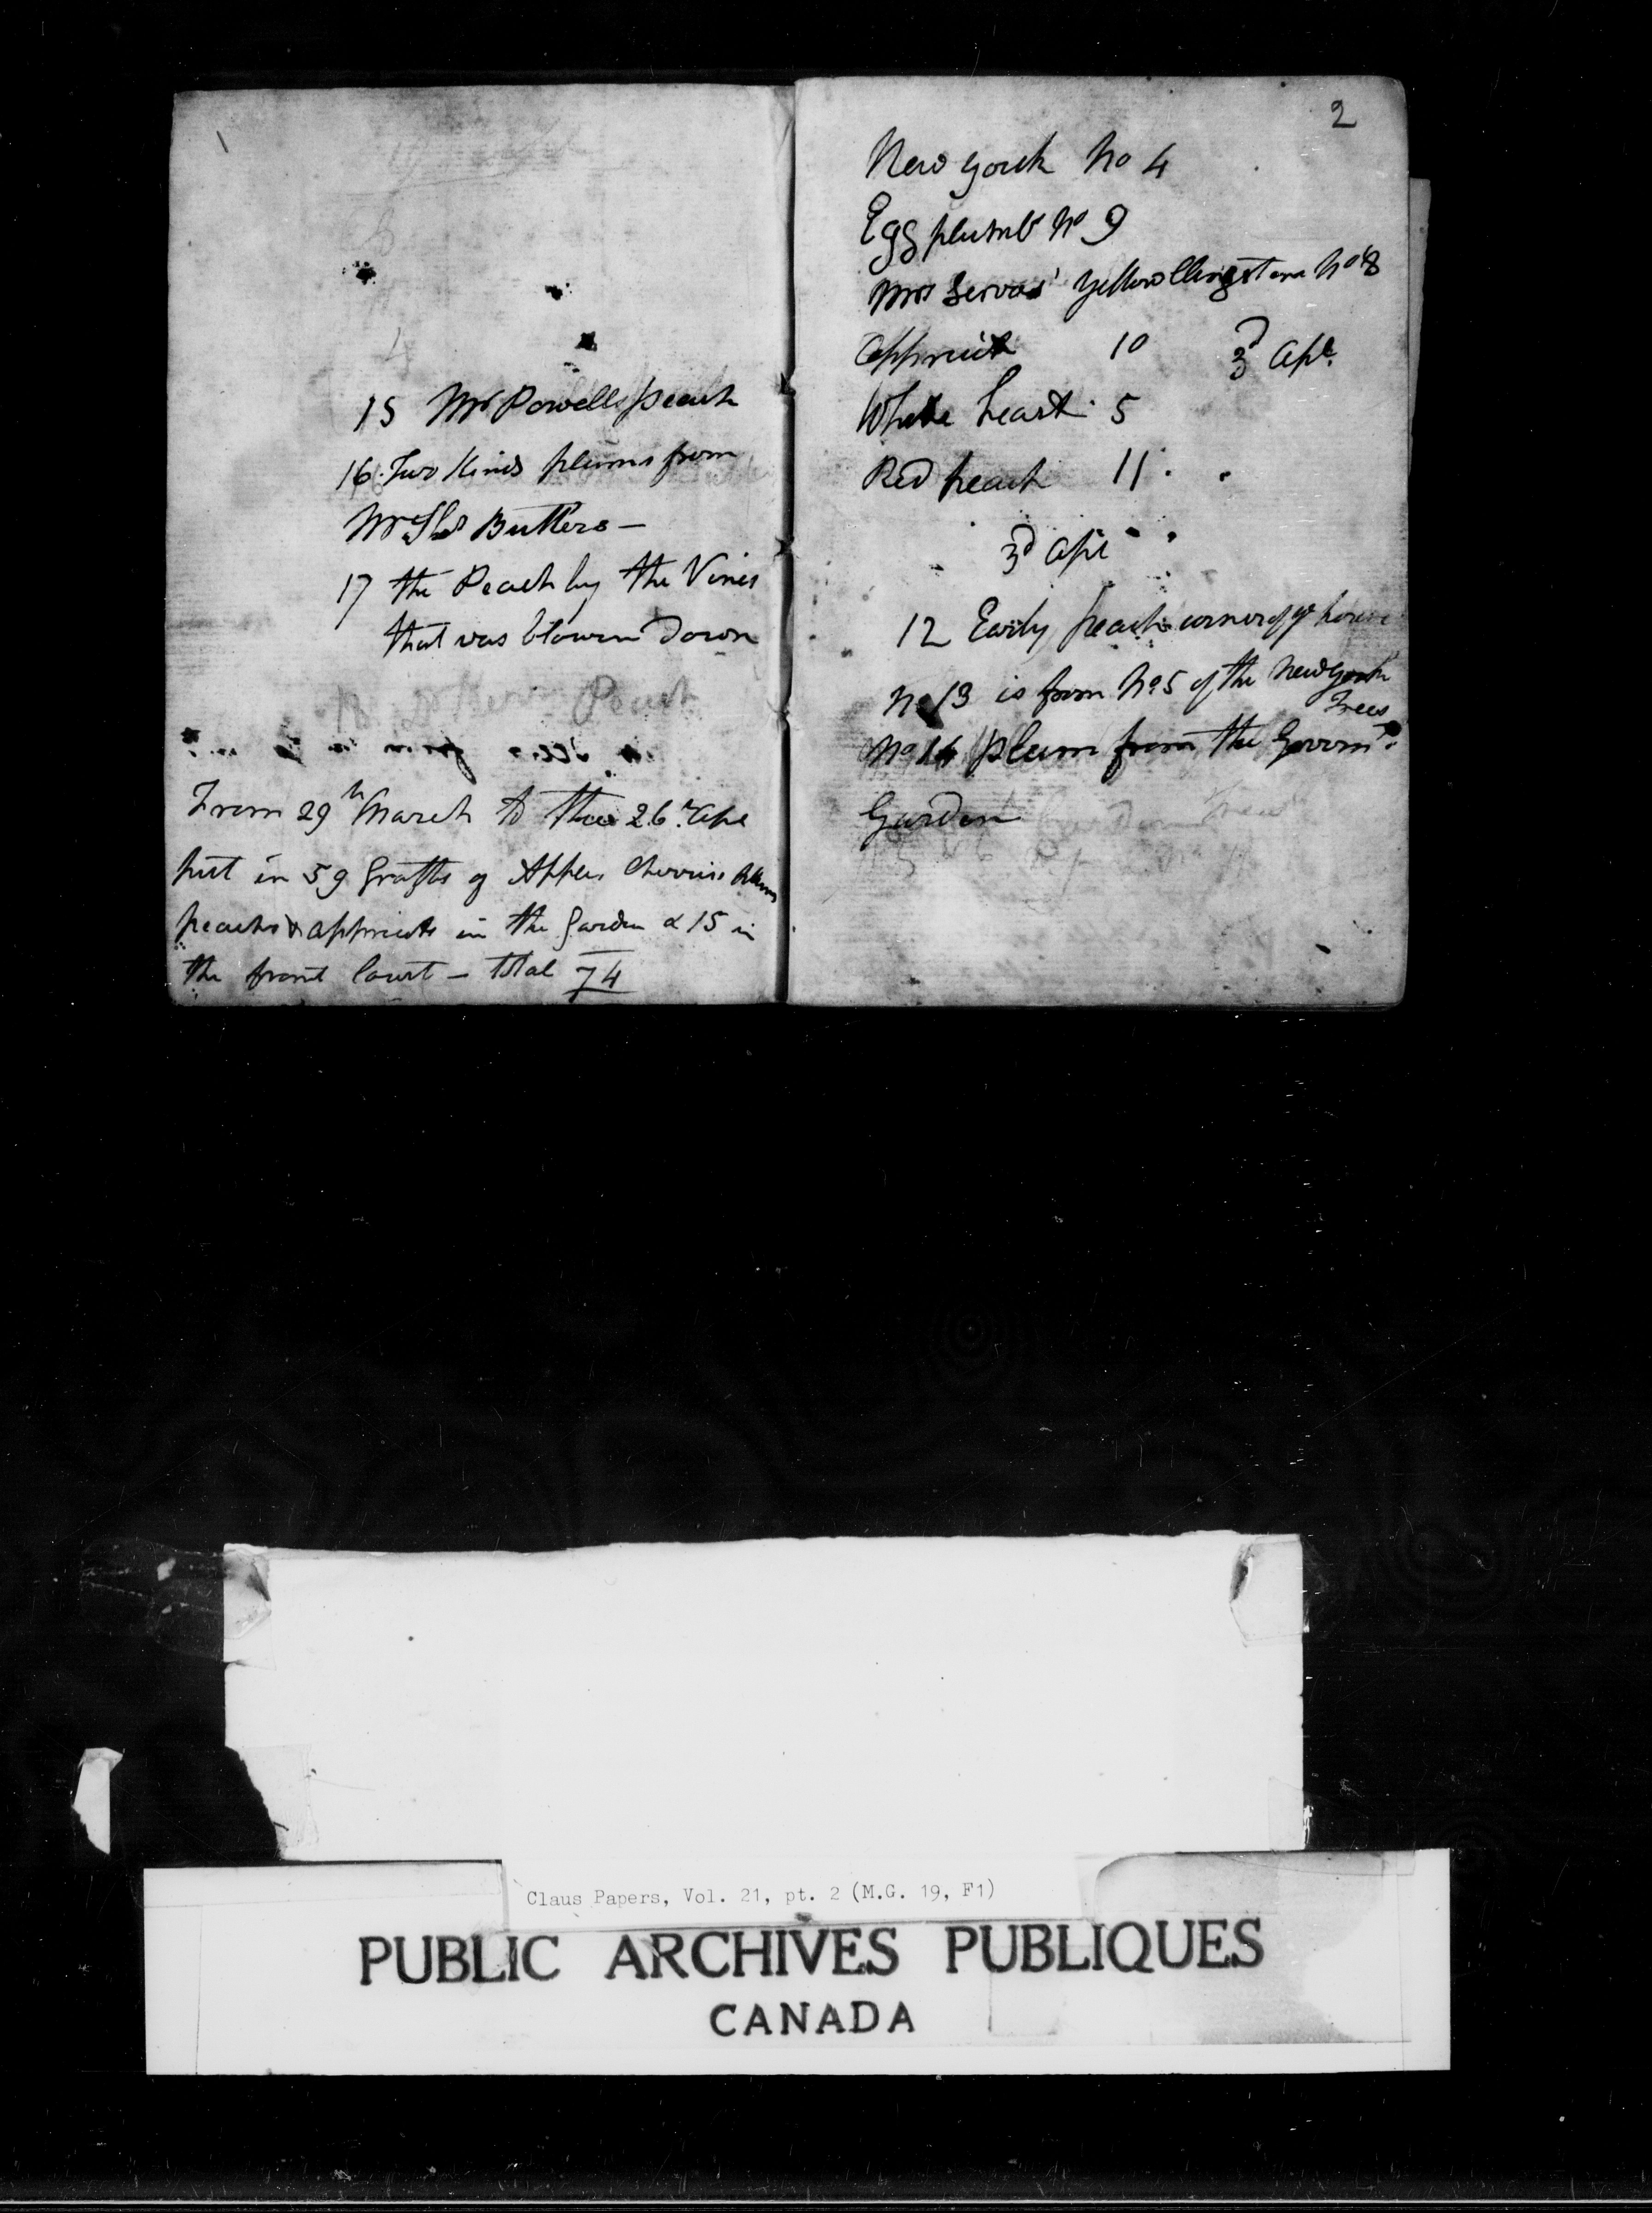 1
15 Mr Powells peach
16. Two Kinds plums from
Mr Thos Butlers —
17 the Peach by the Vines
that was blown down
Peach
From 29th March to the 26th Apl
put in 59 Grafts of Apples Cherries plums
peachs & appricots in the Garden & 15 in
the front Court — total 74
2
New york No 4
Egg plumb No 9
Mrs Servos' yellow Clingstone No 8
Appricot 10 3d Apl.
White heart 5
Red peach 11
3d Apl
12 Early peach corner of ye house
No 13 is from No. 5 of the New York
Trees
No 14 plum from the Governt.
Garden
Claus Papers, Vol. 21, pt. 2 (M.G. 19, F1)
PUBLIC ARCHIVES PUBLIQUES
CANADA